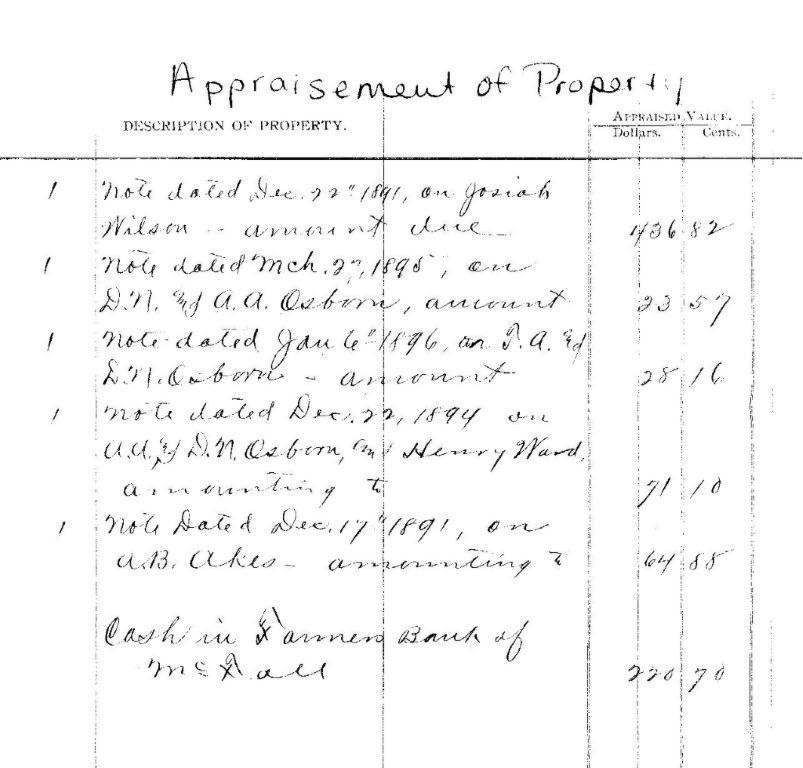 Appraisement of Property
DESCRIPTION OF PROPERTY.
APPRAISED VALUE.
Dollars. Cents.
1 Note dated Dec. 22" 1891, on Josiah
Wilson - amount due - 436 82
1 Note dated Mch. 27, 1895, on
D.N. & A.A. Osborn, amount 23 57
1 Note dated Jan 6" 1896, on T.A. &
D.N. Osborn - amount 28 16
1 Note dated Dec. 22, 1894 on
A.A. & D.N. Osborn, and Henry Ward,
amounting to 71 10
1 Note Dated Dec. 17" 1891, on
A.B. Akes - amounting to 64 88
Cash in Farmers Bank of
McFall 220 70